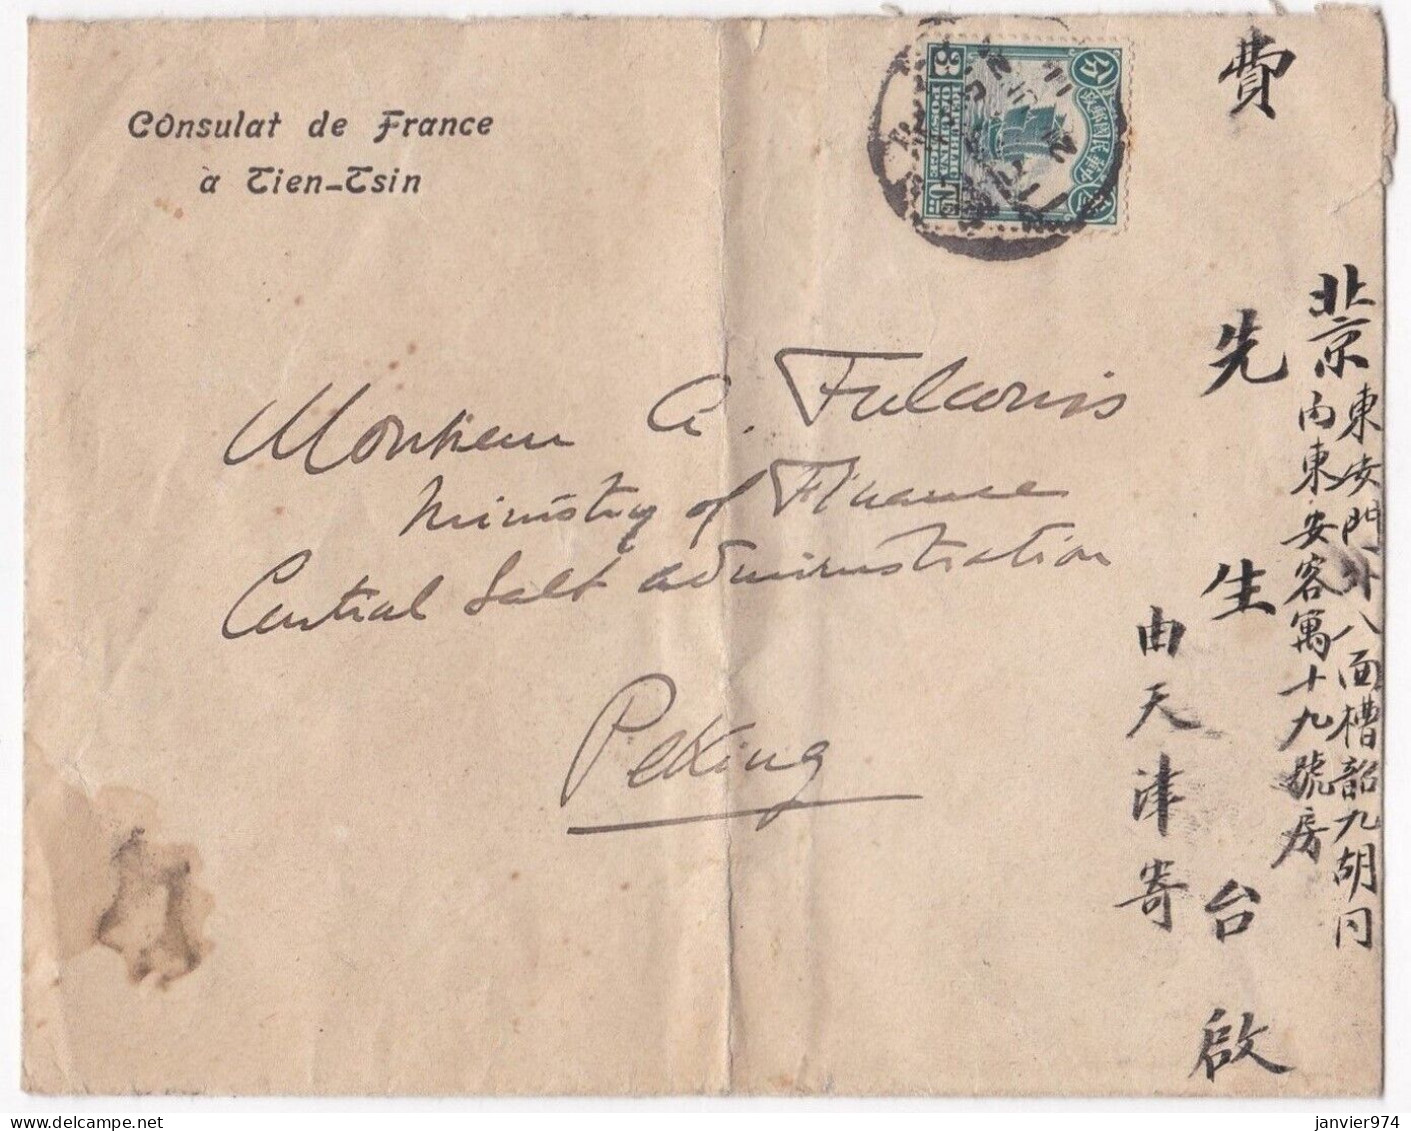 Consulat de France
à Tien-Tsin
Monsieur A. Fulconis
Ministry of Finance
Central Salt Administration
Peking
北京東安門外八面槽韶九胡同
內東安客寓十九號房
費先生台啟
由天津寄
janvier974